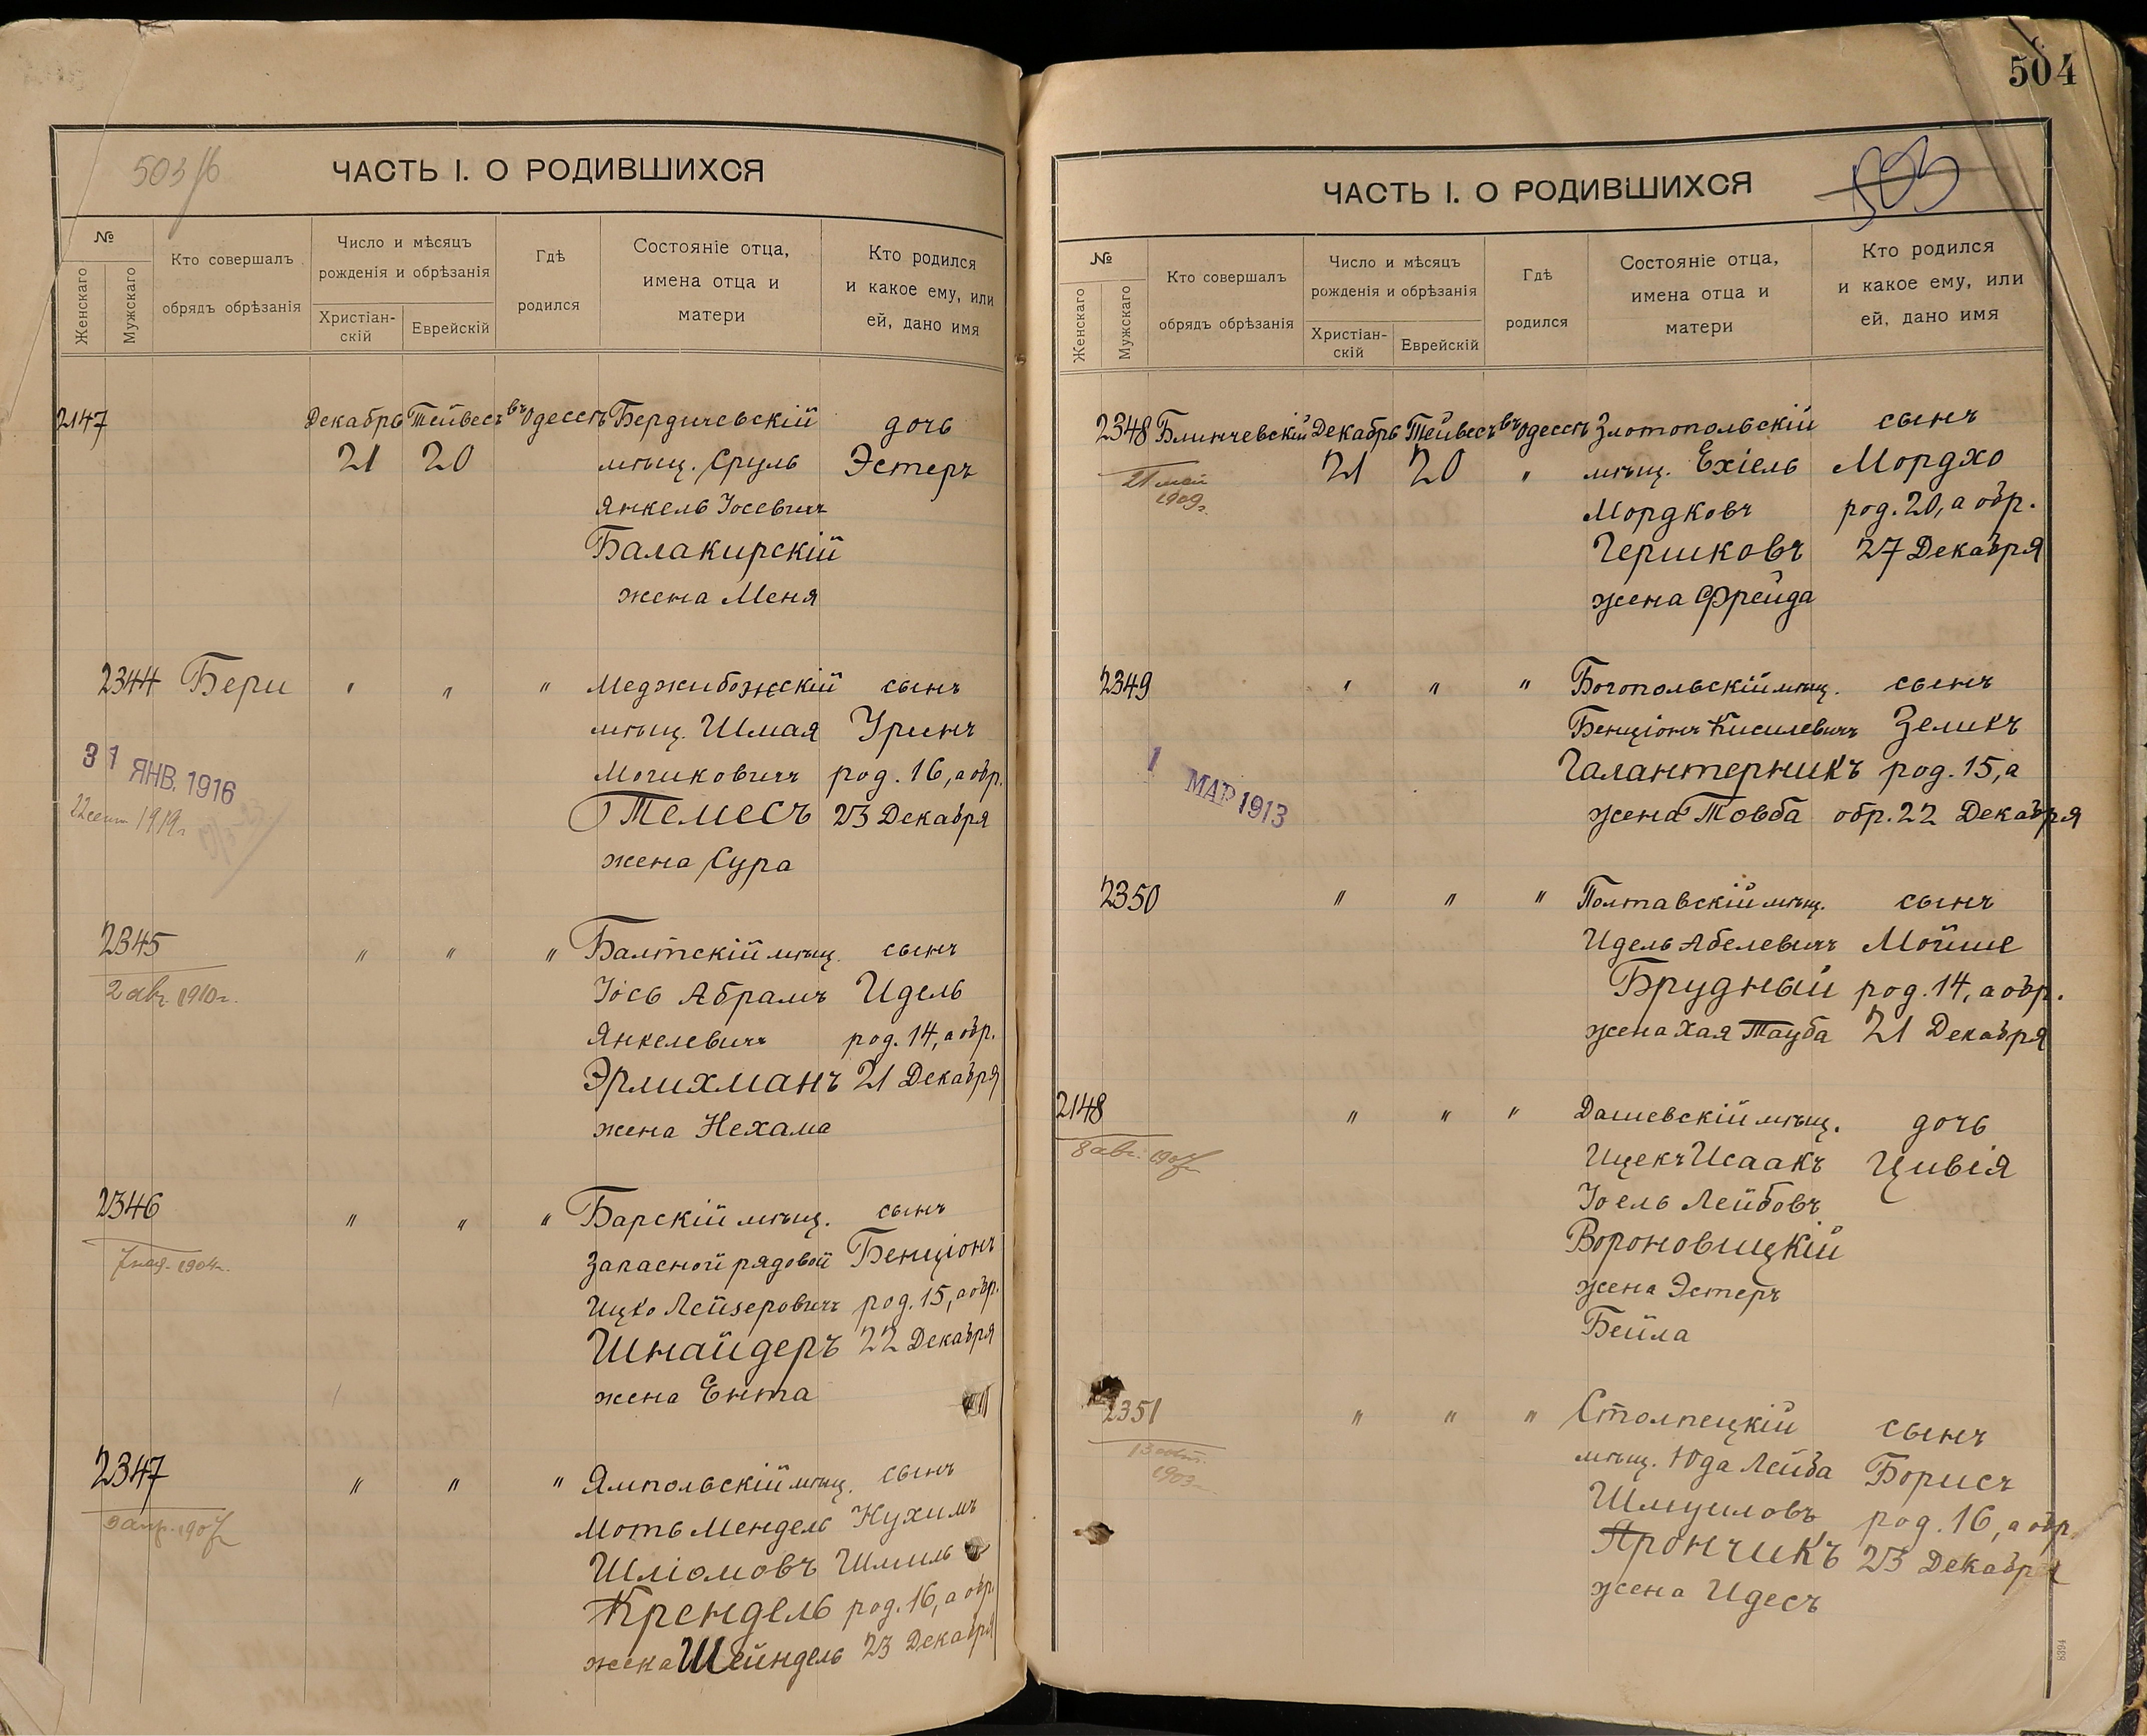 503 об
ЧАСТЬ I. О РОДИВШИХСЯ
№
Женскаго
Мужскаго
Кто совершалъ
обрядъ обрѣзанія
Число и мѣсяцъ
рожденія и обрѣзанія
Христіан-
скій
Еврейскій
Гдѣ
родился
Состояніе отца,
имена отца и
матери
Кто родился
и какое ему, или
ей, дано имя
2147 Декабрь Тейвесъ въ Одессѣ Бердичевскій дочь
21 20 мѣщ. Сруль Эстеръ
Янкель Іосевичъ
Балакирскій
жена Меня
2344 Бери " " " Меджибожскій сынъ
мѣщ. Шмая Уринъ
Мошковичъ род. 16, а обр.
Темесъ 23 Декабря
жена Сура
31 ЯНВ. 1916
22 сент 1919г
2345 " " " Балтскій мѣщ. сынъ
2 авг. 1910г. Іось Абрамъ Идель
Янкелевичъ род. 14, а обр.
Эрлихманъ 21 Декабря
жена Нехама
2346 " " " Барскій мѣщ. сынъ
1904г. Запасной рядовой Бенціонъ
Ицко Лейзеровичъ род. 15, а обр.
Шнайдеръ 22 Декабря
жена Ента
2347 " " " Ямпольскій мѣщ. сынъ
9 апр. 1907 Моть Мендель Нухимъ
Шліомовъ Шмиль
Крендель род. 16, а обр.
жена Шейндель 23 Декабря
504
503
ЧАСТЬ I. О РОДИВШИХСЯ
№
Женскаго
Мужскаго
Кто совершалъ
обрядъ обрѣзанія
Число и мѣсяцъ
рожденія и обрѣзанія
Христіан-
скій
Еврейскій
Гдѣ
родился
Состояніе отца,
имена отца и
матери
Кто родился
и какое ему, или
ей, дано имя
2348 Блинчевскій Декабрь Тейвесъ въ Одессѣ Златопольскій сынъ
21 май 21 20 " мѣщ. Ехіель Мордхо
1909г. Мордковъ род. 20, а обр.
Гершковъ 27 Декабря
жена Фрейда
2349 " " " Богопольскій мѣщ. сынъ
Бенціонъ Кисилевичъ Зеликъ
1 МАР 1913 Галантерникъ род. 15, а
жена Товба обр. 22 Декабря
2350 " " " Полтавскій мѣщ. сынъ
Идель Абелевичъ Мойше
Брудный род. 14, а обр.
жена Хая Тауба 21 Декабря
2148 " " " Дашевскій мѣщ. дочь
8 авг. 1907 Ицекъ Исаакъ Цивія
Іоель Лейбовъ
Вороновицкій
жена Эстеръ
Бейла
2351 " " " Столпецкій сынъ
1903г. мѣщ. Юда Лейба Борисъ
Шмуиловъ род. 16, а обр.
Ярончикъ 23 Декабря
жена Идесъ
8394